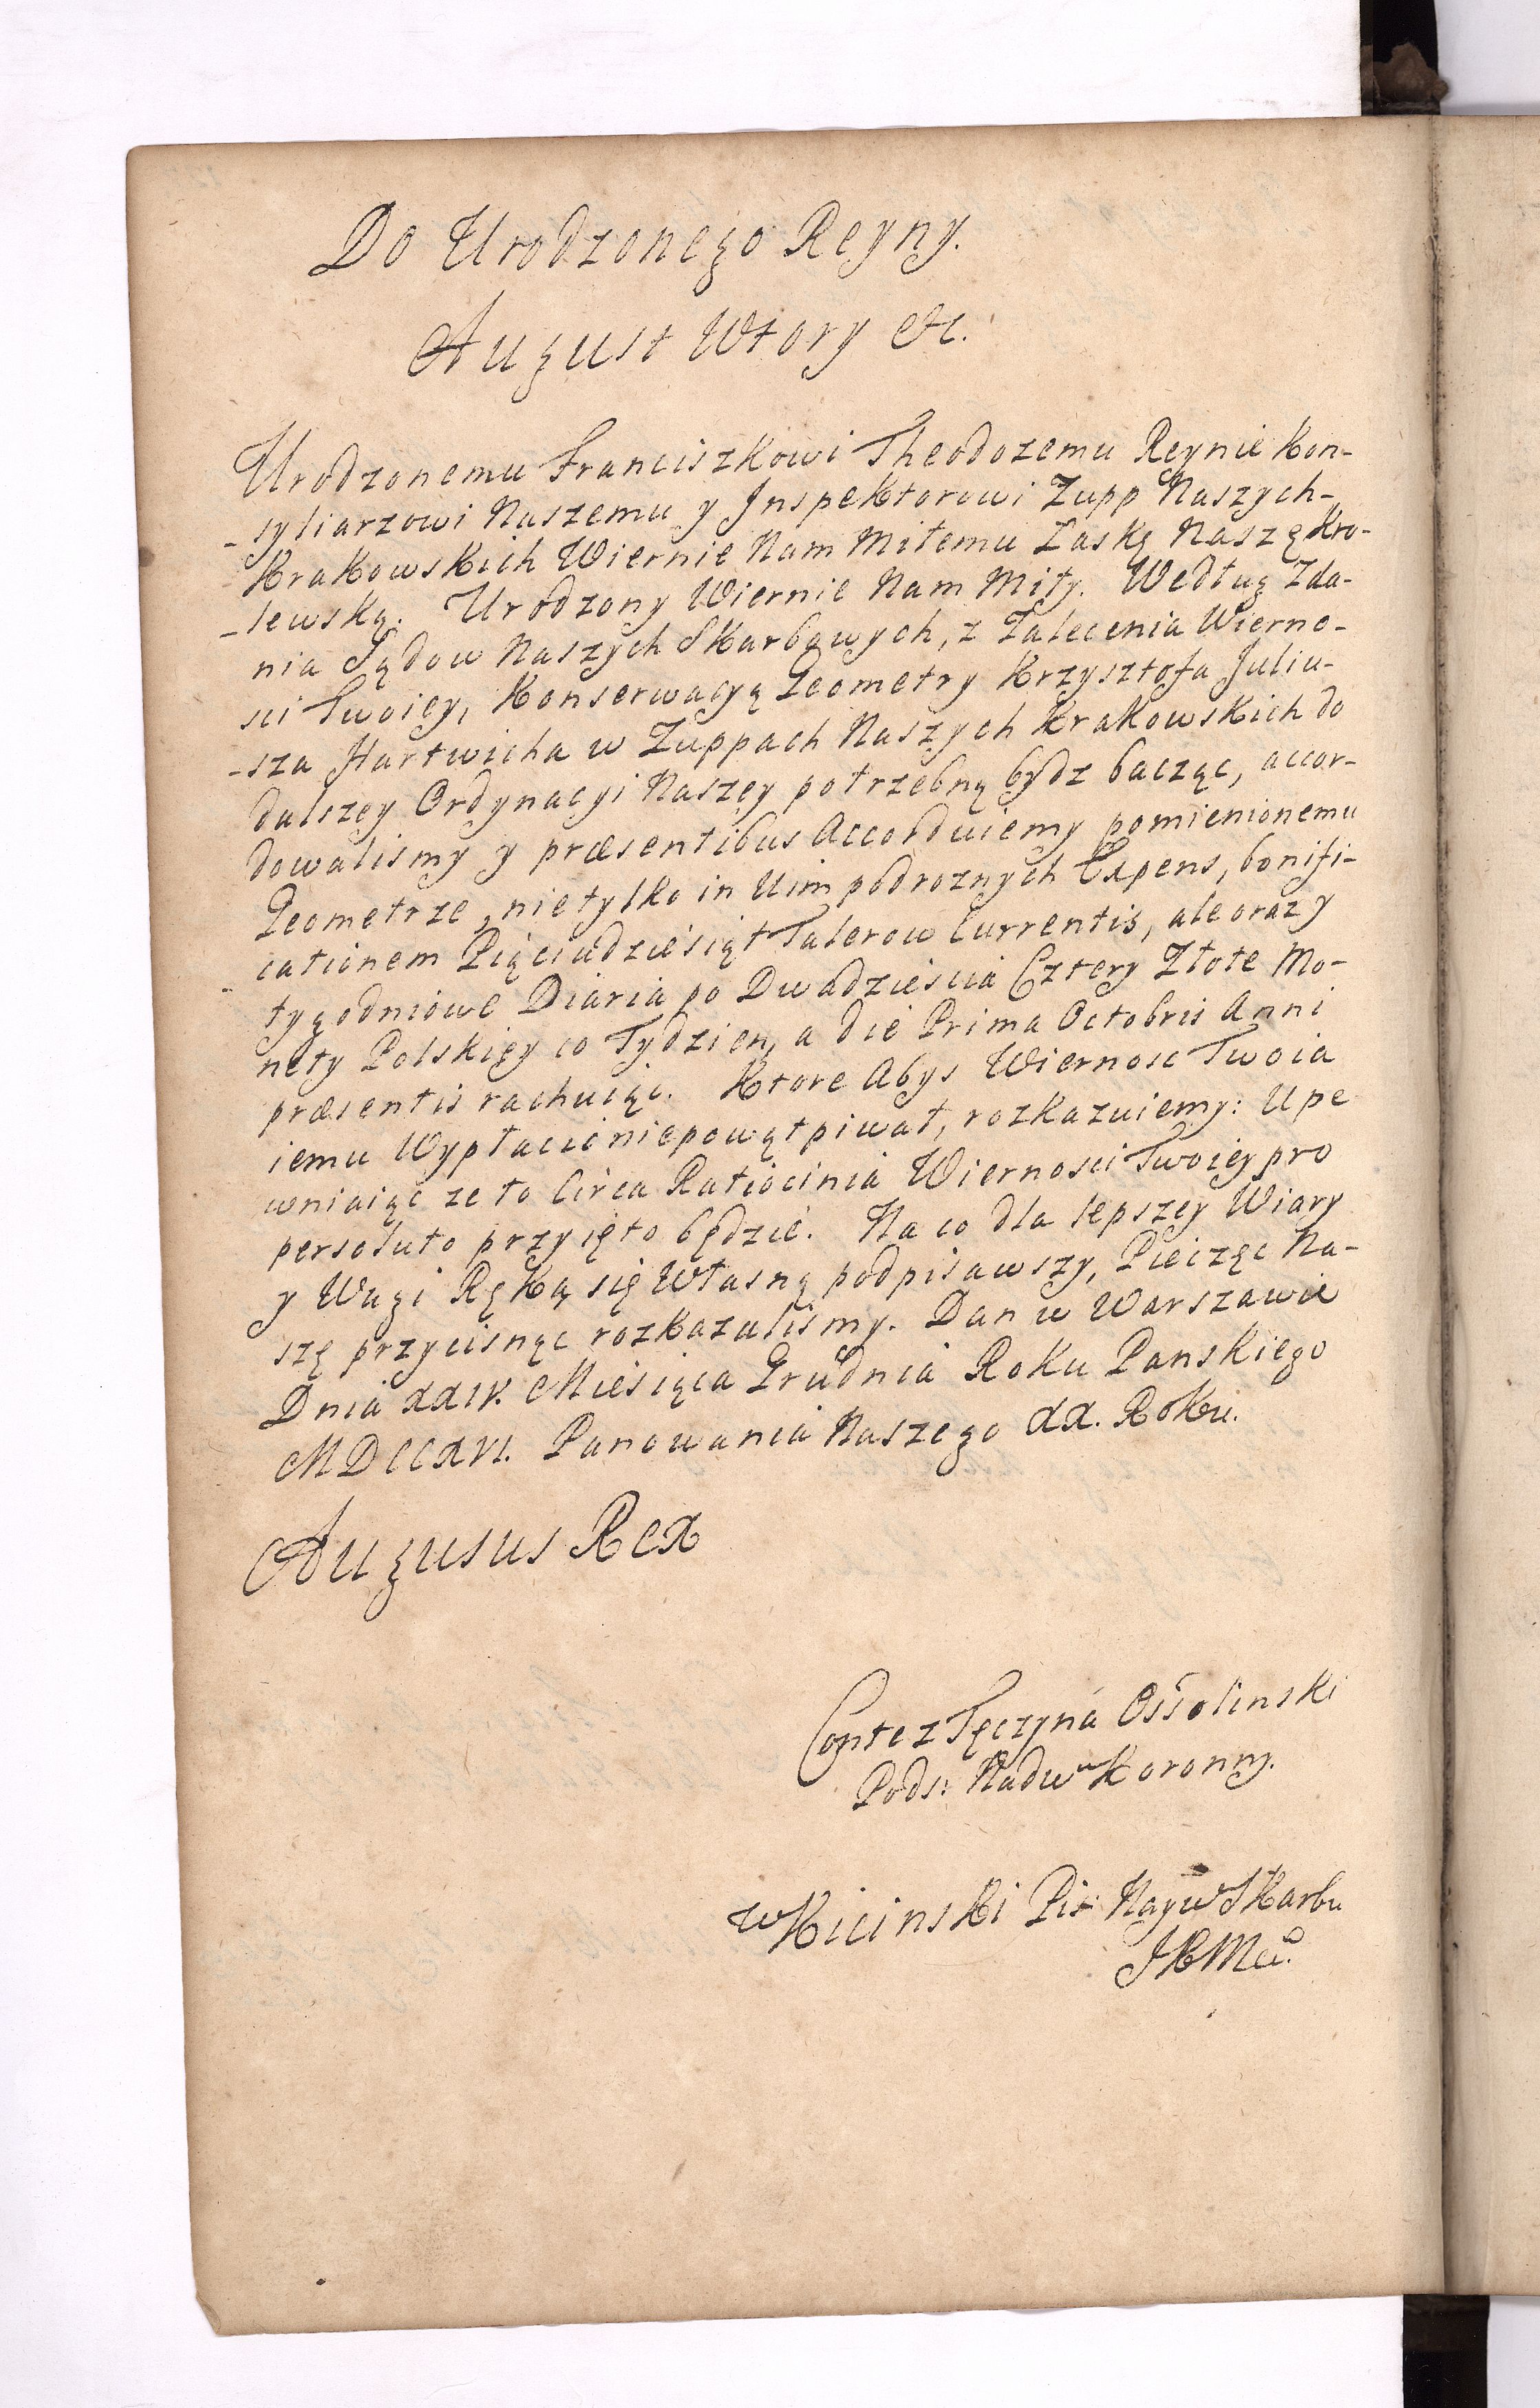 Do Urodzonego Reyny.
August Wtory etc.
Urodzonemu Franciszkowi Theodozemu Reynie Kon-
-syliarzowi Naszemu y Inspektorowi Zupp Naszych-
Krakowskich Wiernie Nam Miłemu Łaskę Naszę Kro-
-lewską. Urodzony Wiernie Nam Miły. Według Zda-
nia Sądow Naszych Skarbowych, z Zalecenia Wierno-
sci Twoiey, Konserwacyą Geometry Krzysztofa Juliu-
-sza Hartwicha w Zuppach Naszych Krakowskich do
dalszey Ordynacyi Naszey potrzebną bydz bacząc, accor-
dowalismy y præsentibus Accorduiemy pomienionemu
Geometrze, nietylko in Vim podroznych Expens, bonifi-
-cationem Pięciudziesiąt Talerow Currentis, ale oraz y
tygodniowe Diaria po Dwadziescia Cztery Złote Mo-
nety Polskiey co Tydzien, a die Prima Octobris Anni
præsentis rachuiąc. Ktore Abys Wiernosc Twoia
iemu Wypłacić niepowątpiwał, rozkazuiemy: Upe
wniaiąc ze to Circa Ratiocinia Wiernosci Twoiey pro
persoluto przyięto będzie. Na co dla lepszey Wiary
y Wagi Ręką się Własną podpisawszy, Pieczęc Na-
szę przycisnąc rozkazalismy. Dan w Warszawie
Dnia XXIV. Miesiąca Grudnia Roku Panskiego
MDCCXVI. Panowania Naszego XX. Roku.
Augusus Rex
Comte z Tęczyna Ossolinski
Pods: Nadw Koronny.
W Kicinski Pis: Nayw Skarbu
JKMci.